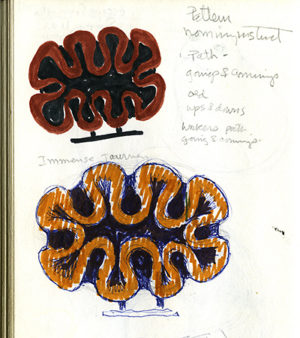 Pattern
Path -
goings & comings
old
ups & downs
path
going & comings.
Immense Journey